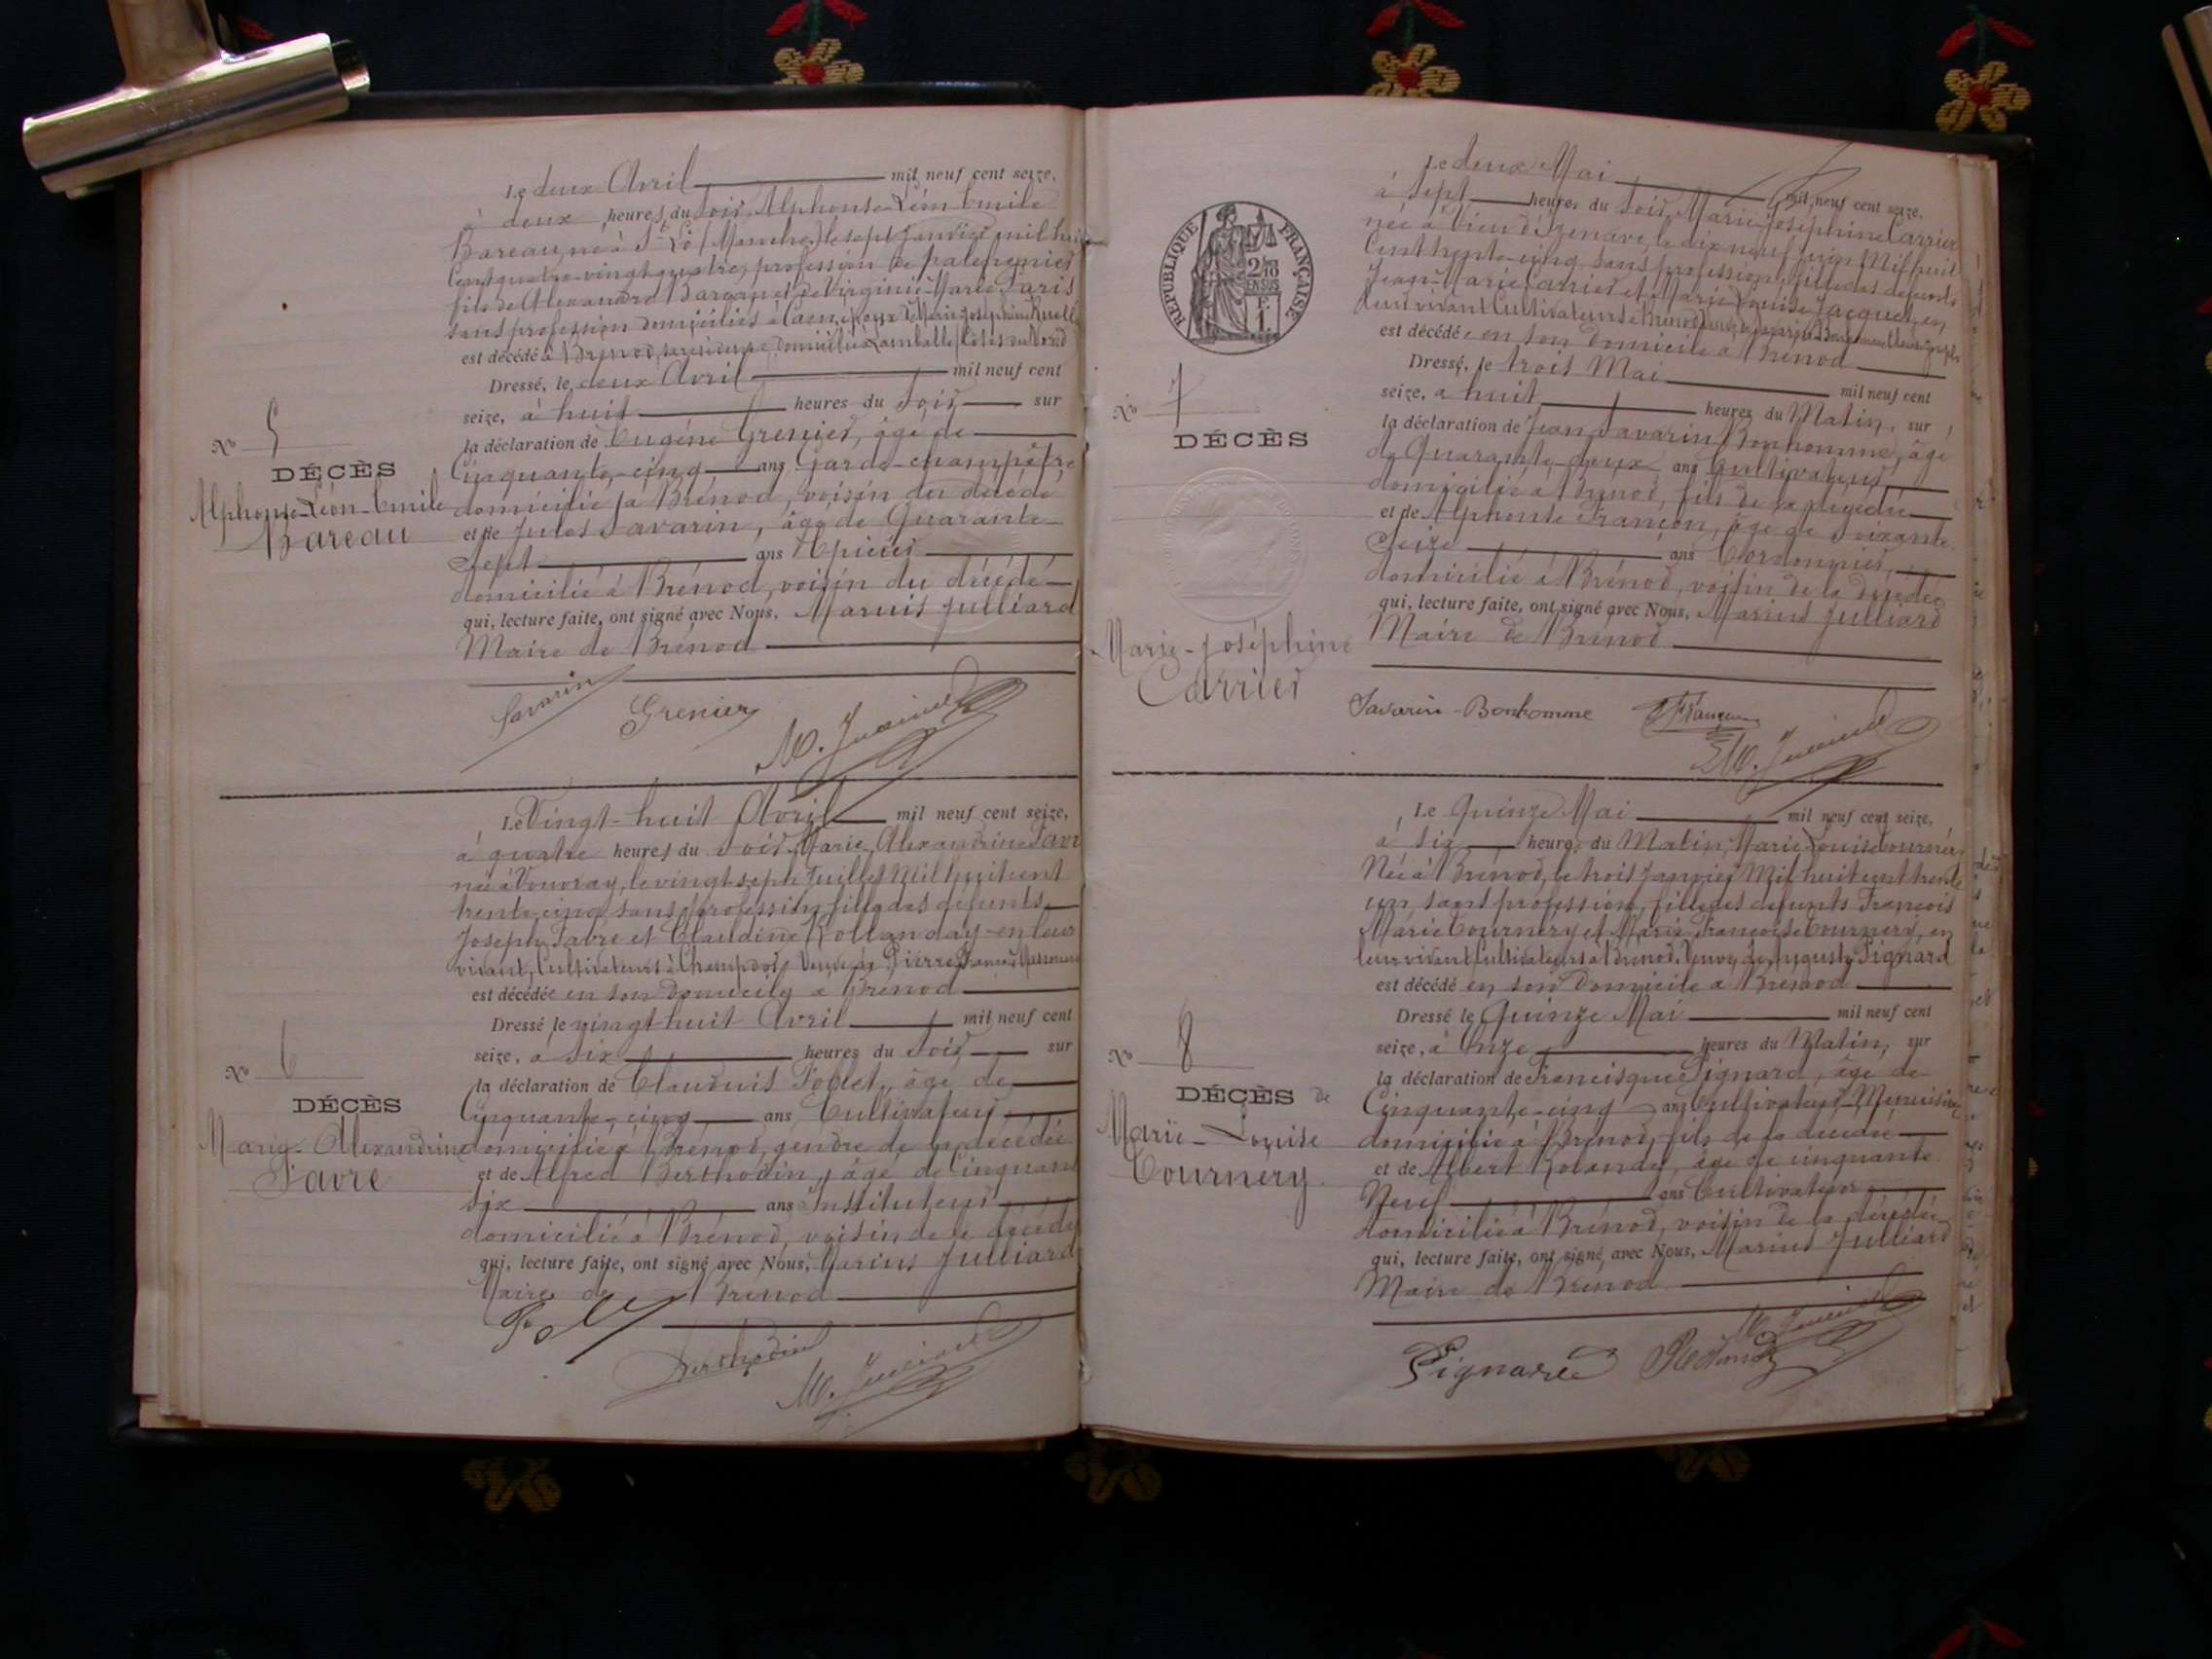 Le deux Avril mil neuf cent seize,
à deux heures du soir, Alphonse-Léon Emile
Bareau, né à St Lô (Manche) le sept Janvier mil huit
Cent quatre-vingt-quatre, profession de palefrenier
fils de Alexandre Bareau et de Virginie-Marie Paris
sans profession domiciliés à Caen, époux de Marie Joséphine Ruelle
est décédé à Brénod, sa résidence, domicilié à Lamballe (Côtes du Nord)
Dressé, le deux Avril mil neuf cent
seize, à huit heures du Soir sur
la déclaration de Eugène Grenier, âgé de
Cinquante-cinq ans Garde-champêtre
domicilié à Brénod, voisin du décédé
et de Jules Savarin, âgé de Quarante
Sept ans Epicier
domicilié à Brénod, voisin du décédé
qui, lecture faite, ont signé avec Nous, Marius Julliard
Maire de Brénod
No 5
DÉCÈS
Alphonse-Léon-Emile
Bareau
Savarin Grenier
M. Julliard
Le Vingt-huit Avril mil neuf cent seize,
à quatre heures du Soir Marie Alexandrine Favre
née à Vouvray, le vingt-sept Juillet Mil huit cent
trente cinq, sans profession, fille des défunts
Joseph Favre et Claudine Rollanday en leur
vivant, Cultivateurs à Champdor, Veuve de Pierre François
est décédée en son domicile à Brénod
Dressé le vingt-huit Avril mil neuf cent
seize, à Six heures du Soir sur
la déclaration de Claudius Poblet, âgé de
Cinquante-cinq ans Cultivateur
domicilié à Brénod, gendre de la décédée
et de Alfred Berthodin, âgé de Cinquante
Six ans Instituteur
domicilié à Brénod, voisin de la décédée
qui, lecture faite, ont signé avec Nous, Marius Julliard
Maire de Brénod
No 6
DÉCÈS
Marie-Alexandrine
Favre
Berthodin
M. Julliard
Le deux Mai mil neuf cent seize,
à sept heures du Soir, Marie-Joséphine Carrier
née à Vieu d'Izenave, le dix neuf Juin Mil huit
Cent trente-cinq, sans profession, fille des défunts
Jean-Marie Carrier et Marie Louise Jacquet, en
leur vivant Cultivateurs à
est décédée en son domicile à Brénod
Dressé, le trois Mai mil neuf cent
seize, à huit heures du Matin, sur
la déclaration de Jean Savarin Bonhomme, âgé
de Quarante-deux ans Cultivateur
domicilié à Brénod, fils de la décédée
et de Alphonse Françon, âgé de Soixante
Seize ans Cordonnier,
domicilié à Brénod, voisin de la décédée
qui, lecture faite, ont signé avec Nous, Marius Julliard
Maire de Brénod
RÉPUBLIQUE FRANÇAISE
2/10
EN SUS
F.
1.
No 7
DÉCÈS
Marie-Joséphine
Carrier
Savarin-Bonhomme Françon
M. Julliard
Le Quinze Mai mil neuf cent seize,
à Six heures du Matin, Marie Louise Tournery
Née à Brénod, le trois Janvier Mil huit cent trente
un, sans profession, fille des défunts François
Marie Tournery et Marie Françoise Tournery, en
leur vivant Cultivateurs à Brénod, Veuve de Auguste Pignard
est décédé en son Domicile à Brénod
Dressé le Quinze Mai mil neuf cent
seize, à Onze heures du Matin, sur
la déclaration de Francisque Pignard, âgé de
Cinquante-cinq ans Cultivateur-Menuisier
domicilié à Brénod, fils de la décédée
et de Albert Rolandy, âgé de cinquante
Neuf ans Cultivateur
domicilié à Brénod, voisin de la décédée
qui, lecture faite, ont signé avec Nous, Marius Julliard
Maire de Brénod
No 8
DÉCÈS de
Marie-Louise
Tournery
M. Julliard
Pignard